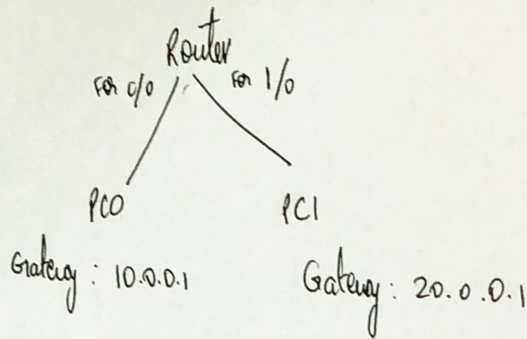 Router
For 0/0
For 1/0
PC0
PC1
Gateway : 10.0.0.1
Gateway : 20.0.0.1